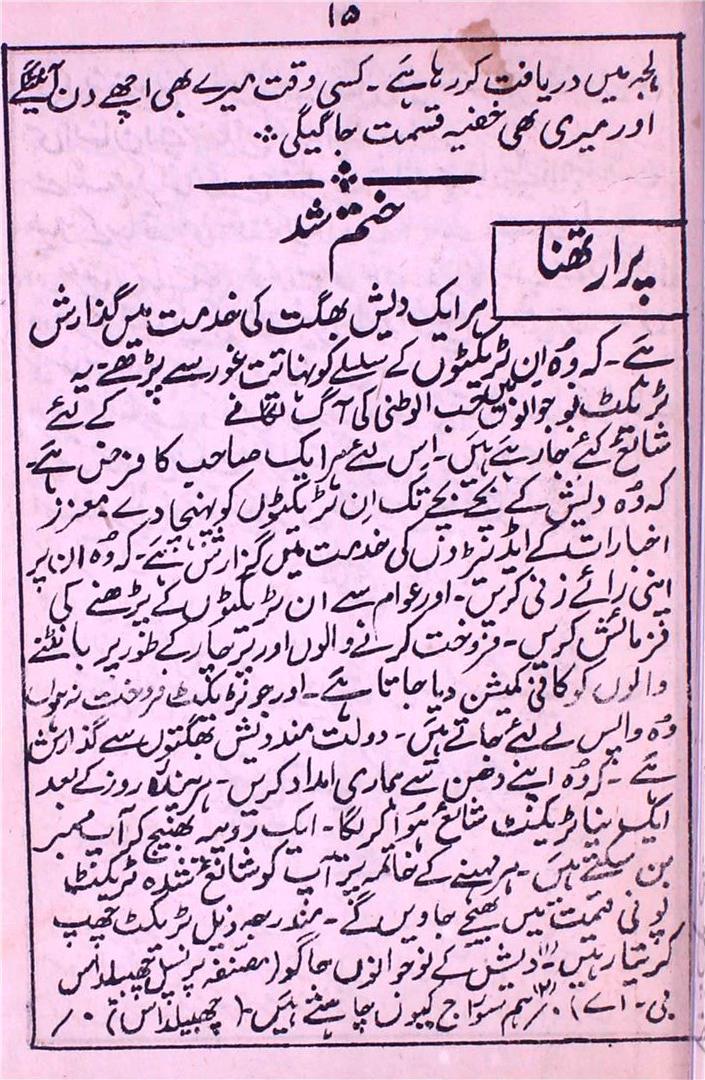 ۱۵
لہجہ میں دریافت کر رہا ہے۔ کسی وقت میرے بھی اچھے دن آئینگے
اور میری بھی خفیہ قسمت جاگیگی
ختم شد
پرارتھنا
ہر ایک دیش بھگت کی خدمت میں گذارش
ہے۔ کہ وُہ اِن ٹریکٹوں کے سلسلے کو نہائت غور سے پڑھے۔ یہ
ٹریکٹ نوجوانوں میں حب الوطنی کی آگ لگانے کے لئے
شائع کئے جا رہے ہیں۔ اِس لئے ہر ایک صاحب کا فرض ہے۔
کہ وُہ دیش کے بچے بچے تک اِن ٹریکٹوں کو پہنچا دے۔ معزز
اخبارات کے ایڈیٹروں کی خدمت میں گزارش ہے۔ کہ وُہ ان پر
اپنی رائے زنی کریں۔ اور عوام سے ان ٹریکٹوں کے پڑھنے کی
فرمائش کریں۔ فروخت کرنے والوں اور پرچار کے طور پر بانٹنے
والوں کو کافی کمیشن دیا جاتا ہے۔ اور جو ٹریکٹ فروخت نہ ہوں
وُہ واپس لے لئے جاتے ہیں۔ دولت مند دیش بھگتوں سے گذارش
ہے۔ کہ وُہ اپنے دھن سے ہماری امداد کریں۔ ہر پندرہ روز کے بعد
ایک نیا ٹریکٹ شائع ہُوا کریگا۔ ایک روپیہ بھیج کر آپ ممبر
بن سکتے ہیں۔ ہر مہینے کے خاتمہ پر آپ کو شائع شدہ ٹریکٹ
پونی قیمت میں بھیجے جاویں گے۔ مندرجہ ذیل ٹریکٹ چھپ
کر تیار ہیں۔ (۱) دیش کے نوجوانوں جاگو (مصنفہ پرنسپل چھبیلداس
بی۔ اے) ۰/ (۲) ہم سوراج کیوں چاہتے ہیں۔ (چھبیلداس) ۰/